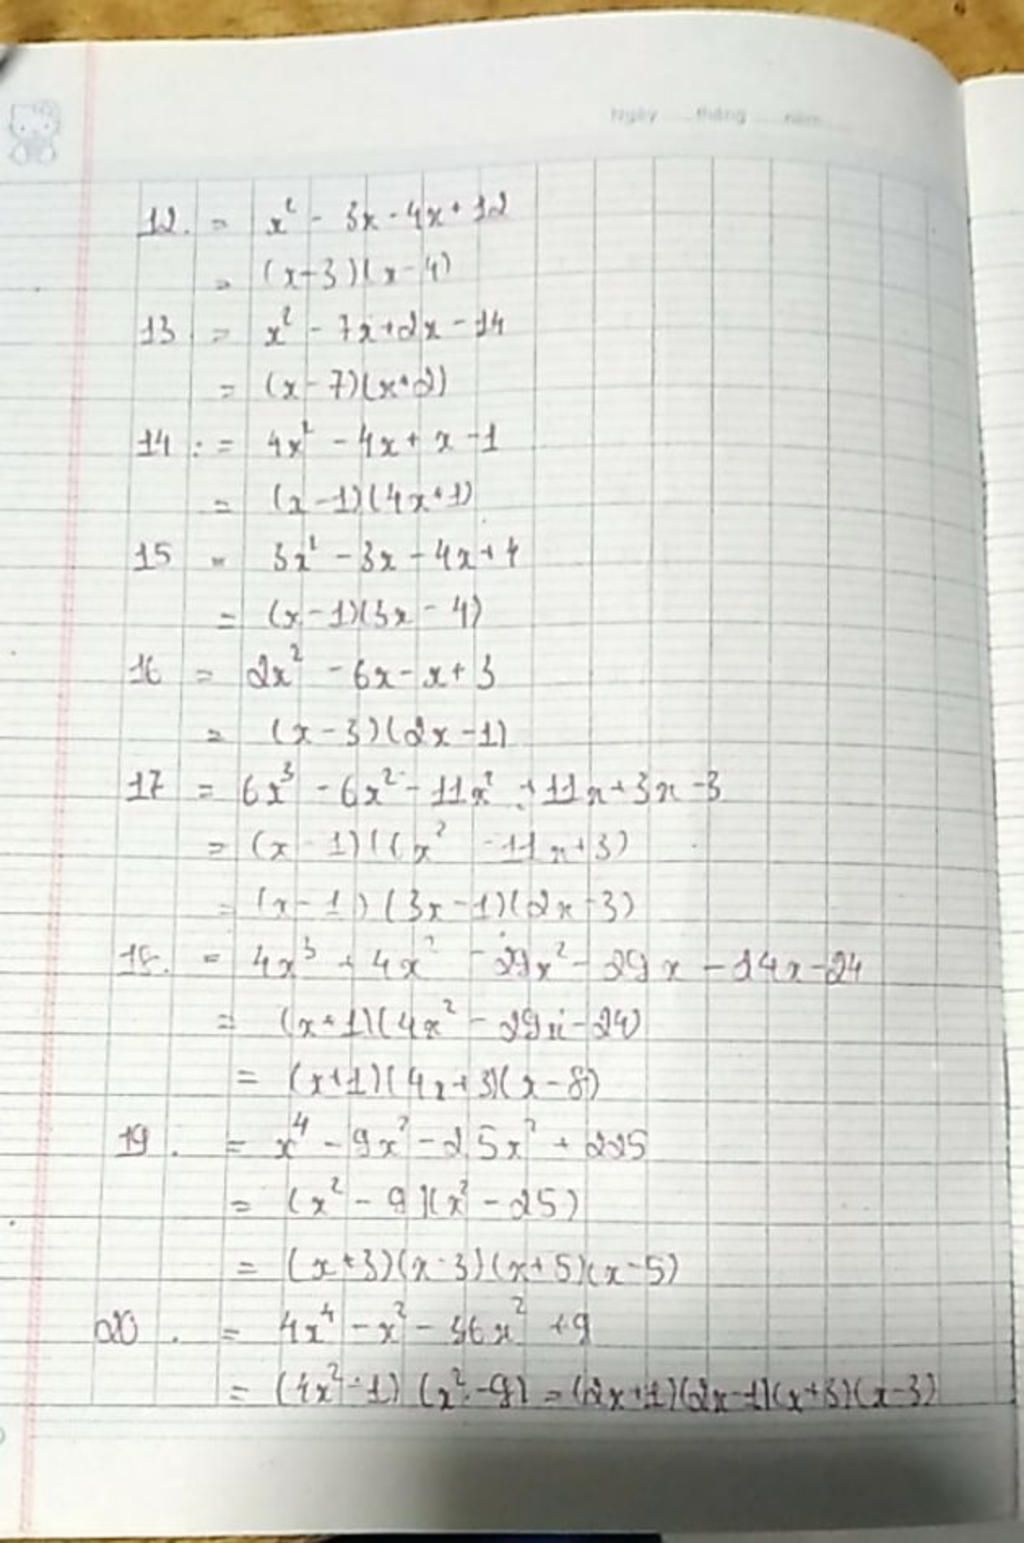 Ngày tháng năm
12. = x² - 3x - 4x + 12
= (x-3)(x-4)
13 = x² - 7x + 2x - 14
= (x-7)(x+2)
14 : = 4x² - 4x + x - 1
= (x-1)(4x+1)
15 = 3x² - 3x - 4x + 4
= (x-1)(3x-4)
16 = 2x² - 6x - x + 3
= (x-3)(2x-1)
17 = 6x³ - 6x² - 11x² + 11x + 3x - 3
= (x-1)(6x² - 11x + 3)
= (x-1)(3x-1)(2x-3)
18. = 4x³ + 4x² - 29x² - 29x - 24x - 24
= (x+1)(4x² - 29x - 24)
= (x+1)(4x+3)(x-8)
19. = x⁴ - 9x² - 25x² + 225
= (x² - 9)(x² - 25)
= (x+3)(x-3)(x+5)(x-5)
20. = 4x⁴ - x² - 36x² + 9
= (4x² - 1)(x² - 9) = (2x+1)(2x-1)(x+3)(x-3)